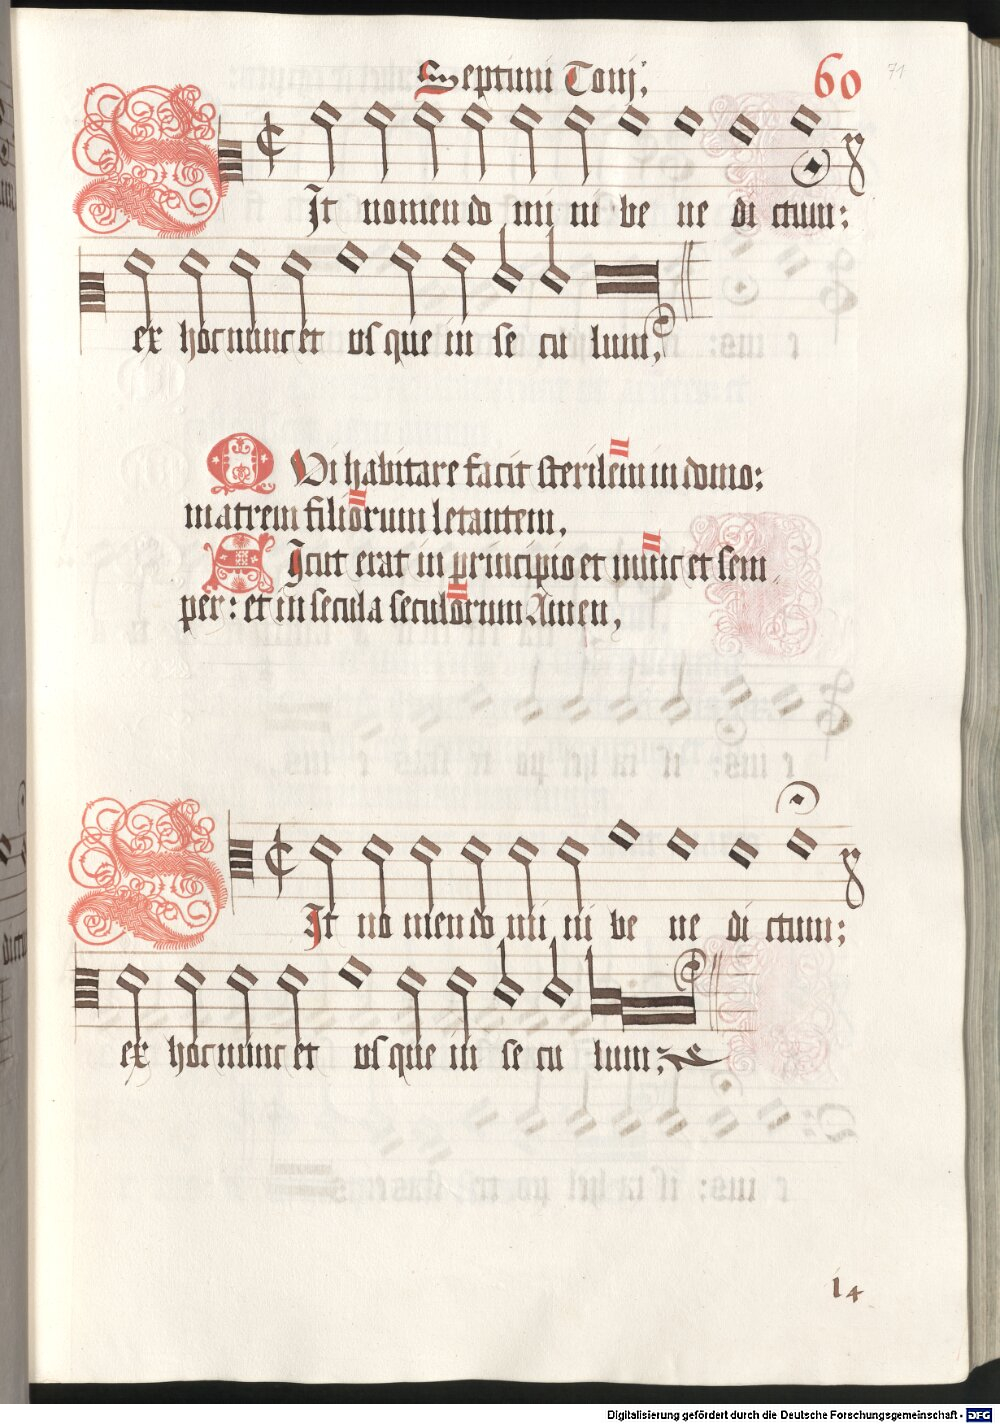 Septimi Tonj,
60
71
SIt nomen do mi ni be ne di ctum:
ex hoc nunc et vs que in se cu lum,
QVi habitare facit sterilem in domo:
matrem filiorum letantem,
SIcut erat in principio et nunc et sem
per: et in secula seculorum Amen,
SIt no men do mi ni be ne di ctum:
ex hoc nunc et vs que in se cu lum:
14
Digitalisierung gefördert durch die Deutsche Forschungsgemeinschaft - DFG